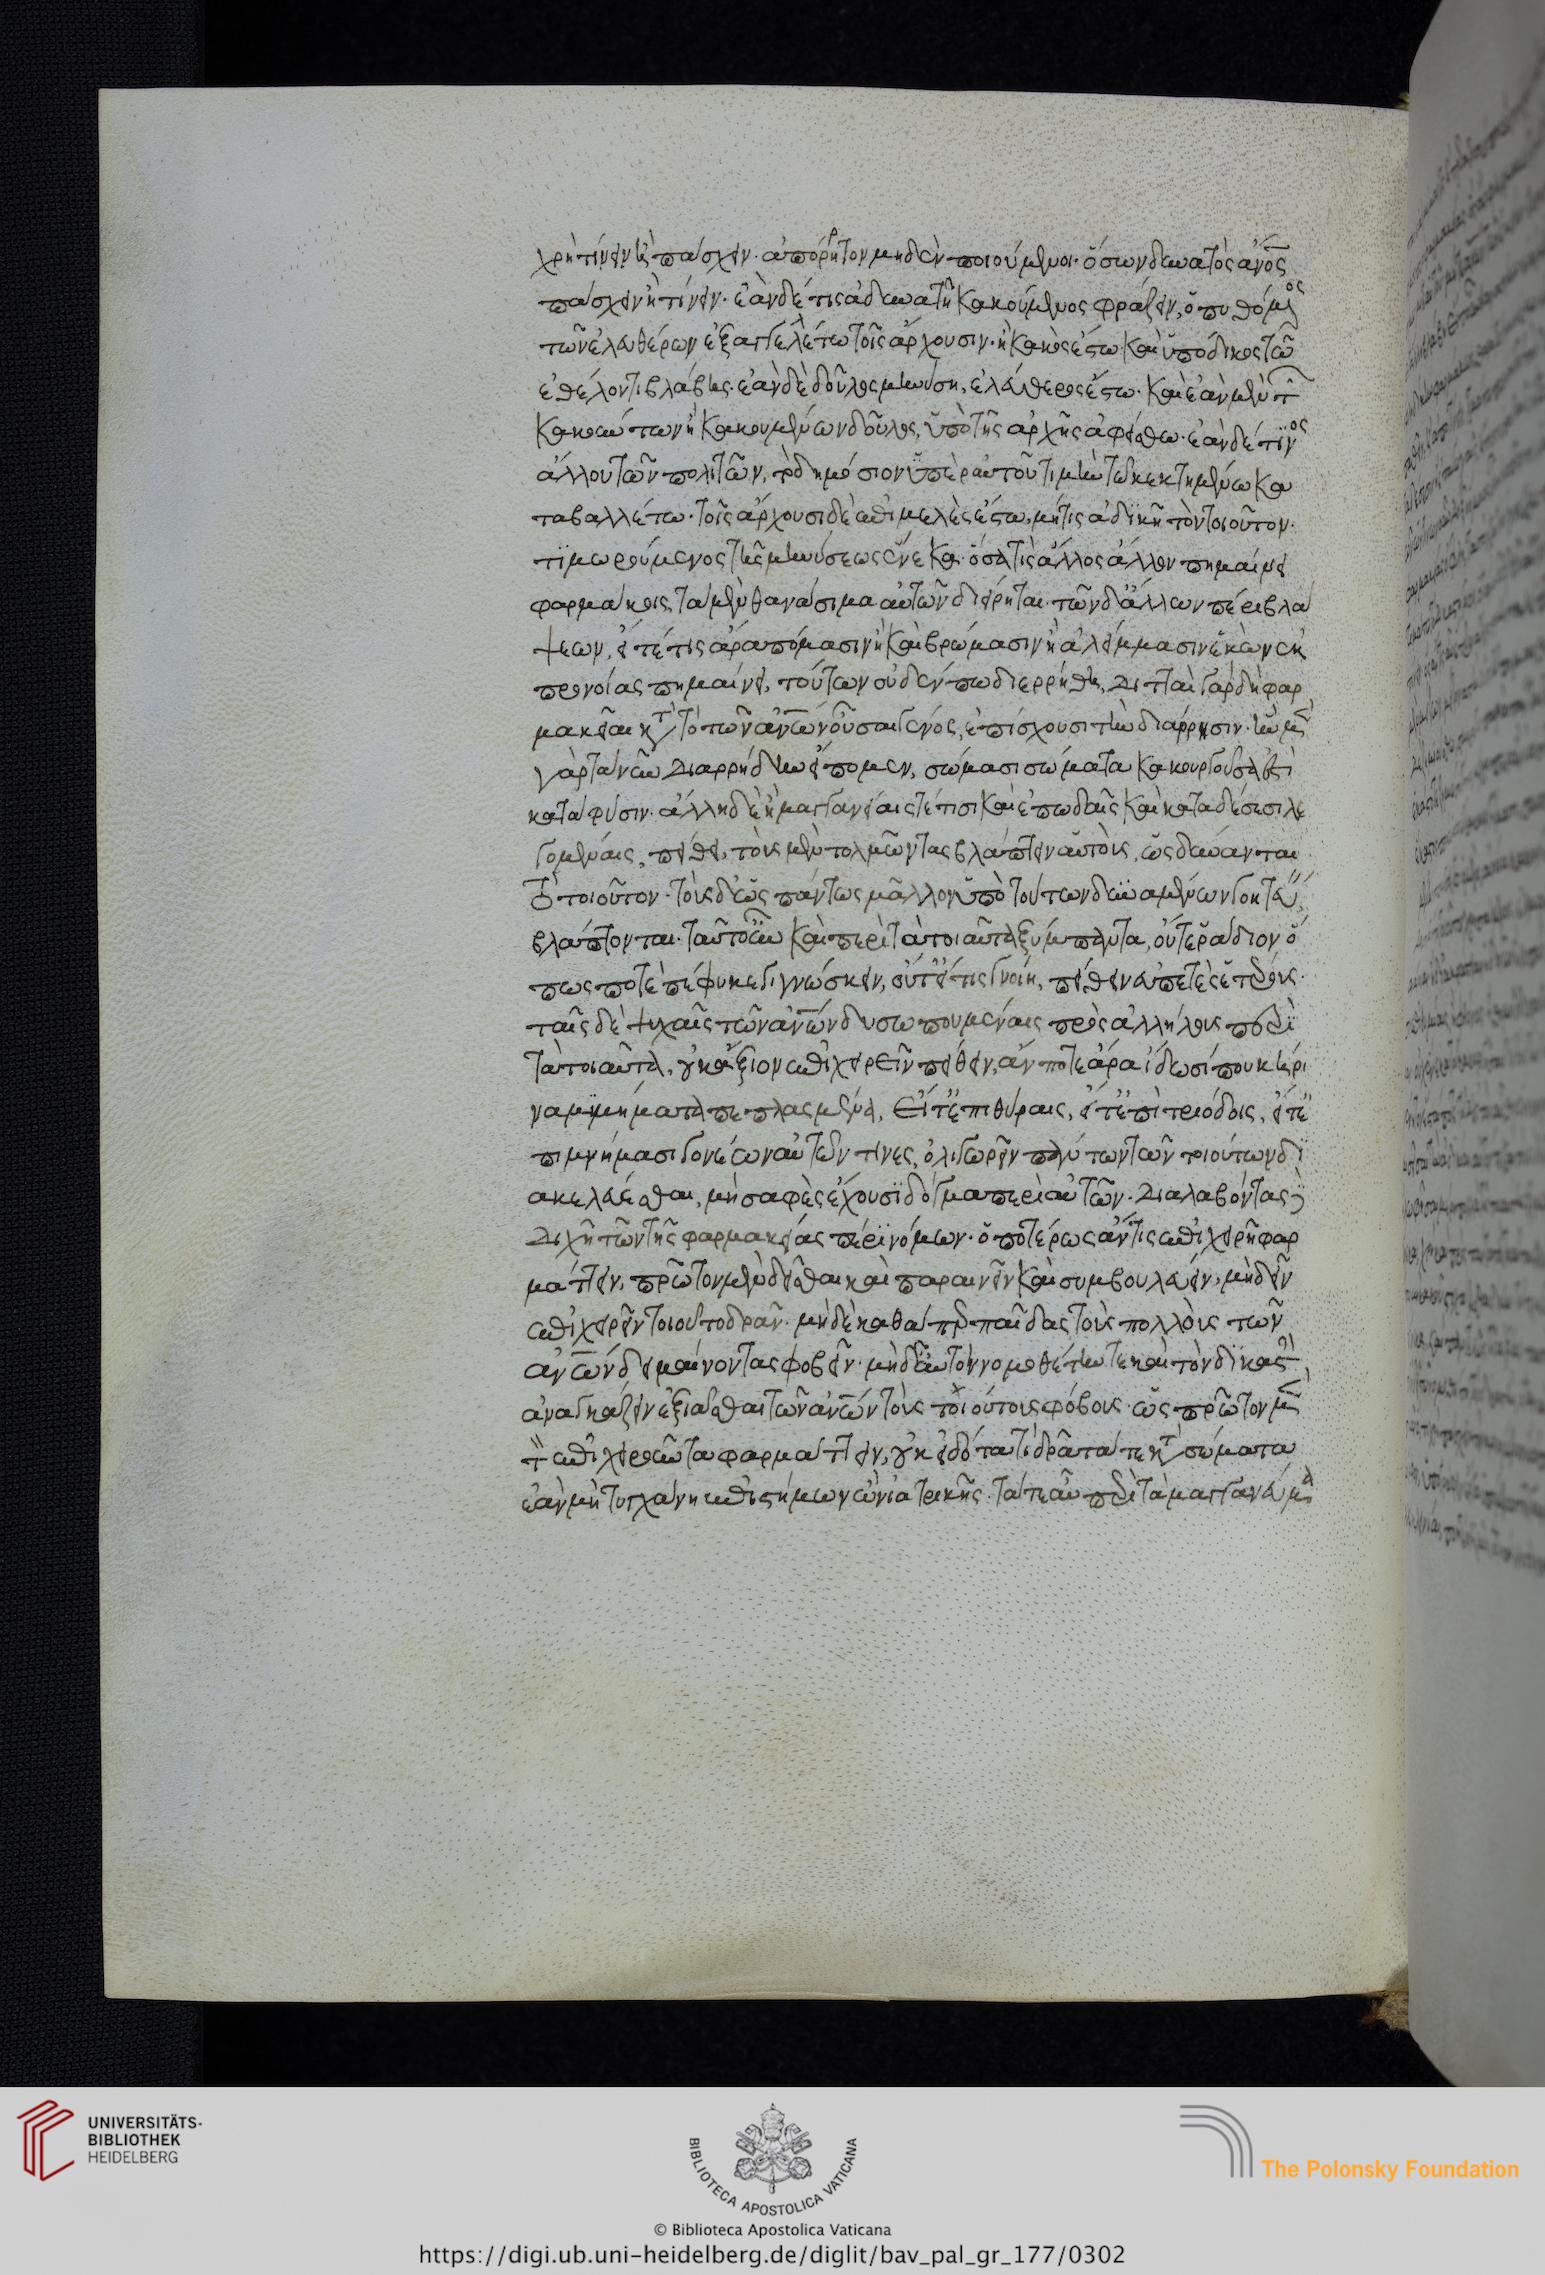 χρὴ τίνειν ἢ πάσχειν. ἀπόρρητον μηδὲν ποιούμενοι. ὅσων δυνατὸς ἄνος
πάσχειν ἢ τίνειν. ἐὰν δέ τις ἀδυνατῇ κακούμενος φράζειν, ὁ πυθόμενος
τῶν ἐλευθέρων ἐξαγγελέτω τοῖς ἄρχουσιν. ἢ κακὸς ἔστω καὶ ὑπόδικος τῷ
ἐθέλοντι βλάβης. ἐὰν δὲ δοῦλος μηνύσῃ, ἐλεύθερος ἔστω. καὶ ἐὰν μὲν τῶν
κακωσάντων ἢ κακουμένων δοῦλος, ὑπὸ τῆς ἀρχῆς ἀφείσθω. ἐὰν δέ τινος
ἄλλου τῶν πολιτῶν, τὸ δημόσιον ὑπὲρ αὐτοῦ τιμὴν τῷ κεκτημένῳ κα
ταβαλλέτω. τοῖς ἄρχουσι δὲ ἐπιμελὲς ἔστω, μή τις ἀδικῇ τὸν τοιοῦτον.
τιμωρούμενος τῆς μηνύσεως ἕνεκα. ὅσα τις ἄλλος ἄλλον πημαίνει
φαρμάκοις, τὰ μὲν θανάσιμα αὐτῶν διείρηται. τῶν δ' ἄλλων πέρι βλά
ψεων, εἴτέ τις ἄρα πόμασιν ἢ καὶ βρώμασιν ἢ ἀλείμμασιν ἑκὼν ἐκ
προνοίας πημαίνει, τούτων οὐδέν πω διερρήθη. διτταὶ γὰρ δὴ φαρ
μακεῖαι κατὰ τὸ τῶν ἀνων οὖσαι γένος, ἐπίσχουσι τὴν διάρρησιν. ἣν μὲν
γὰρ τὰ νῦν διαρρήδην εἴπομεν, σώμασι σώματα κακουργοῦσά ἐστι
κατὰ φύσιν. ἄλλη δὲ ἣ μαγγανείαις τέ τισι καὶ ἐπῳδαῖς καὶ καταδέσεσι λε
γομέναις, πείθει, τοὺς μὲν τολμῶντας βλάπτειν αὐτοὺς, ὡς δύνανται
τὸ τοιοῦτον. τοὺς δ' ὡς πάντως μᾶλλον ὑπὸ τούτων δυναμένων γοητεύειν
βλάπτονται. ταῦτ' οὖν καὶ περὶ τὰ τοιαῦτα ξύμπαντα, οὔτε ῥᾴδιον ὅ
πως ποτὲ πέφυκε γιγνώσκειν, οὔτ' εἴ τις γνοίη, πείθειν εὐπετὲς ἑτέρους.
ταῖς δὲ ψυχαῖς τῶν ἀνων δυσωπουμέναις πρὸς ἀλλήλους περὶ
τὰ τοιαῦτα, οὐκ ἄξιον ἐπιχειρεῖν πείθειν, ἄν ποτε ἄρα ἴδωσί που κήρι
να μιμήματα πεπλασμένα, εἴτ' ἐπὶ θύραις, εἴτ' ἐπὶ τριόδοις, εἴτ' ἐ
πὶ μνήμασι γονέων αὐτῶν τινες, ὀλιγωρεῖν πάντων τῶν τοιούτων δι
ακελεύεσθαι, μὴ σαφὲς ἔχουσι δόγμα περὶ αὐτῶν. διαλαβόντας
διχῇ τῶν τῆς φαρμακείας πέρι νόμων. ὁποτέρως ἄν τις ἐπιχειρῇ φαρ
μάττειν, πρῶτον μὲν δεῖσθαι καὶ παραινεῖν καὶ συμβουλεύειν, μὴ δεῖν
ἐπιχειρεῖν τοιοῦτο δρᾶν. μηδὲ καθάπερ παῖδας τοὺς πολλοὺς τῶν
ἀνων δειμαίνοντας φοβεῖν. μηδ' αὖ τὸν νομοθέτην τε καὶ τὸν δικαστὴν
ἀναγκάζειν ἐξιᾶσθαι τῶν ἀνων τοὺς τοιούτους φόβους. ὡς πρῶτον μὲν
τὸν ἐπιχειροῦντα φαρμάττειν, οὐκ εἰδότα τί δρᾷ τά τε κατὰ σώματα
ἐὰν μὴ τυγχάνῃ ἐπιστήμων ὢν ἰατρικῆς. τά τε αὖ περὶ τὰ μαγγανεύματα
UNIVERSITÄTS-
BIBLIOTHEK
HEIDELBERG
BIBLIOTECA APOSTOLICA VATICANA
The Polonsky Foundation
© Biblioteca Apostolica Vaticana
https://digi.ub.uni-heidelberg.de/diglit/bav_pal_gr_177/0302